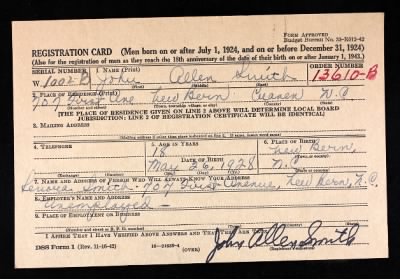 FORM APPROVED
Budget Bureau No. 33-R012-42
REGISTRATION CARD (Men born on or after July 1, 1924, and on or before December 31, 1924)
(Also for the registration of men as they reach the 18th anniversary of the date of their birth on or after January 1, 1943.)
SERIAL NUMBER 1. NAME (Print) ORDER NUMBER
W-1002-B John Allen Smith 13610-B
(First) (Middle) (Last)
2. PLACE OF RESIDENCE (Print)
707 First Ave New Bern Craven N.C.
[THE PLACE OF RESIDENCE GIVEN ON LINE 2 ABOVE WILL DETERMINE LOCAL BOARD
JURISDICTION; LINE 2 OF REGISTRATION CERTIFICATE WILL BE IDENTICAL]
3. MAILING ADDRESS
[Mailing address if other than place indicated on line 2. If same, insert word same]
4. TELEPHONE 5. AGE IN YEARS 6. PLACE OF BIRTH
18 New Bern,
DATE OF BIRTH
May 26, 1928 N.C
7. NAME AND ADDRESS OF PERSON WHO WILL ALWAYS KNOW YOUR ADDRESS
Smith - 707 First Avenue, New Bern, N.C.
8. EMPLOYER'S NAME AND ADDRESS
Unemployed -
9. PLACE OF EMPLOYMENT OR BUSINESS
I AFFIRM THAT I HAVE VERIFIED ABOVE ANSWERS AND THAT THEY ARE TRUE.
DSS Form 1 (Rev. 11-16-42) (OVER) John Allen Smith